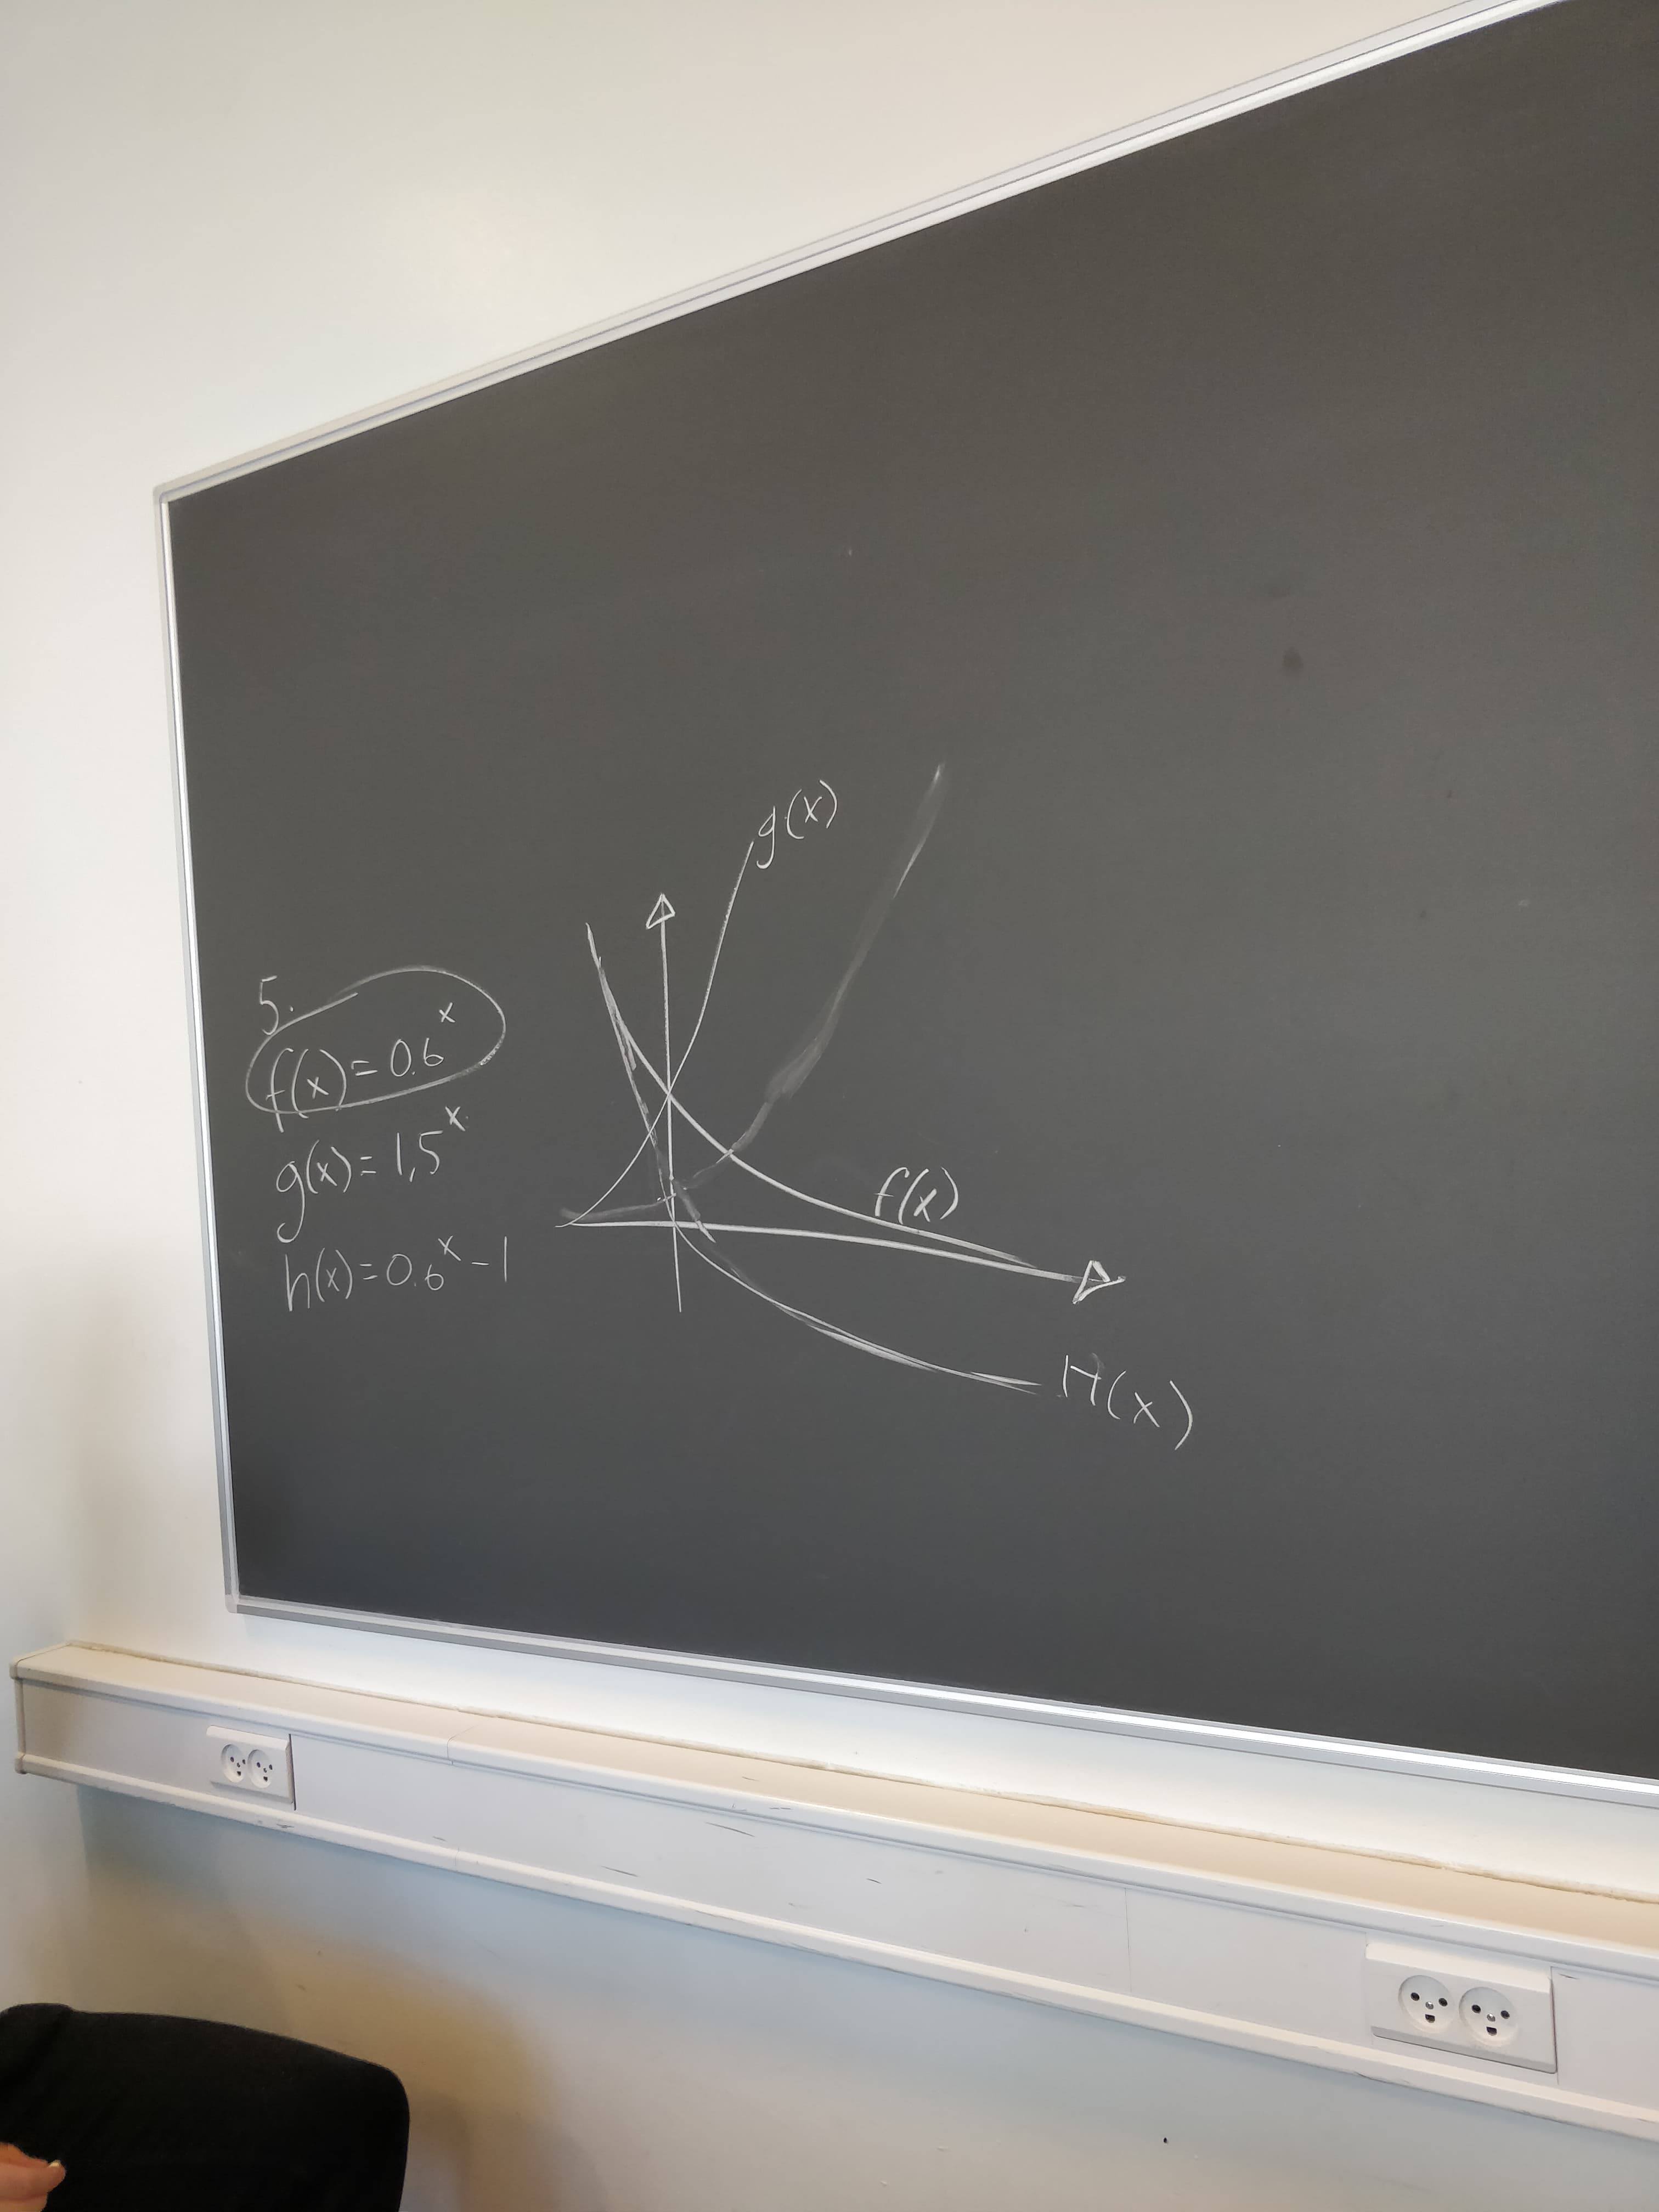 5.
f(x) = 0.6^x
g(x) = 1,5^x
h(x) = 0.6^x - 1
g(x)
f(x)
H(x)